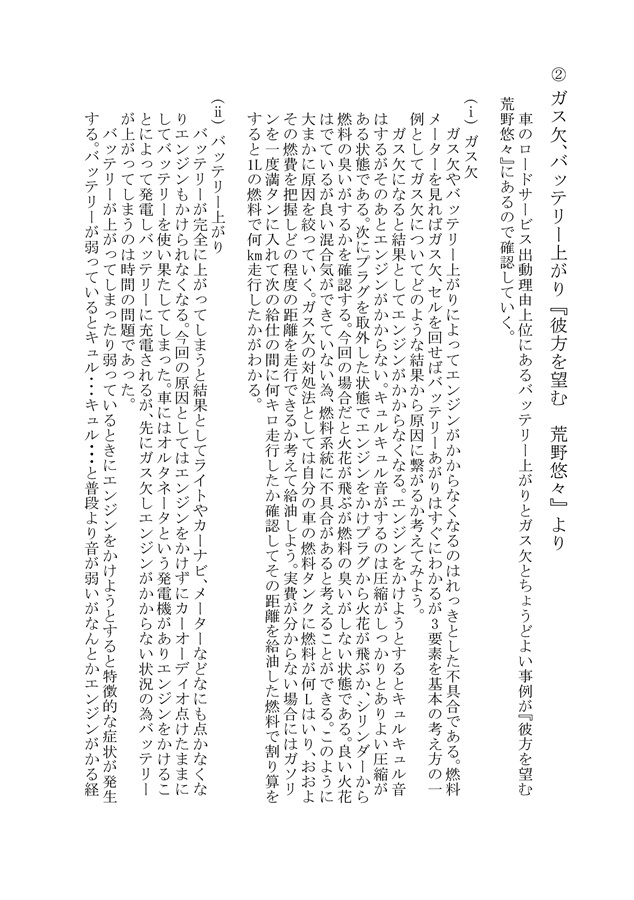 ② ガス欠、バッテリー上がり『彼方を望む　荒野悠々』より
車のロードサービス出動理由上位にあるバッテリー上がりとガス欠とちょうどよい事例が『彼方を望む
荒野悠々』にあるので確認していく。
(ⅰ) ガス欠
ガス欠やバッテリー上がりによってエンジンがかからなくなるのはれっきとした不具合である。燃料
メーターを見ればガス欠、セルを回せばバッテリーあがりはすぐにわかるが3要素を基本の考え方の一
例としてガス欠についてどのような結果から原因に繋がるか考えてみよう。
ガス欠になると結果としてエンジンがかからなくなる。エンジンをかけようとするとキュルキュル音
はするがそのあとエンジンがかからない。キュルキュル音がするのは圧縮がしっかりとありよい圧縮が
ある状態である。次にプラグを取外した状態でエンジンをかけプラグから火花が飛ぶか、シリンダーから
燃料の臭いがするかを確認する。今回の場合だと火花が飛ぶが燃料の臭いがしない状態である。良い火花
はでているが良い混合気ができていない為、燃料系統に不具合があると考えることができる。このように
大まかに原因を絞っていく。ガス欠の対処法としては自分の車の燃料タンクに燃料が何Lはいり、おおよ
その燃費を把握しどの程度の距離を走行できるか考えて給油しよう。実費が分からない場合にはガソリ
ンを一度満タンに入れて次の給仕の間に何キロ走行したか確認してその距離を給油した燃料で割り算を
すると1Lの燃料で何km走行したかがわかる。
(ⅱ) バッテリー上がり
バッテリーが完全に上がってしまうと結果としてライトやカーナビ、メーターなどなにも点かなくな
りエンジンもかけられなくなる。今回の原因としてはエンジンをかけずにカーオーディオ点けたままに
してバッテリーを使い果たしてしまった。車にはオルタネータという発電機がありエンジンをかけるこ
とによって発電しバッテリーに充電されるが、先にガス欠しエンジンがかからない状況の為バッテリー
が上がってしまうのは時間の問題であった。
バッテリーが上がってしまったり弱っているときにエンジンをかけようとすると特徴的な症状が発生
する。バッテリーが弱っているとキュル・・・キュル・・・と普段より音が弱いがなんとかエンジンがかる経